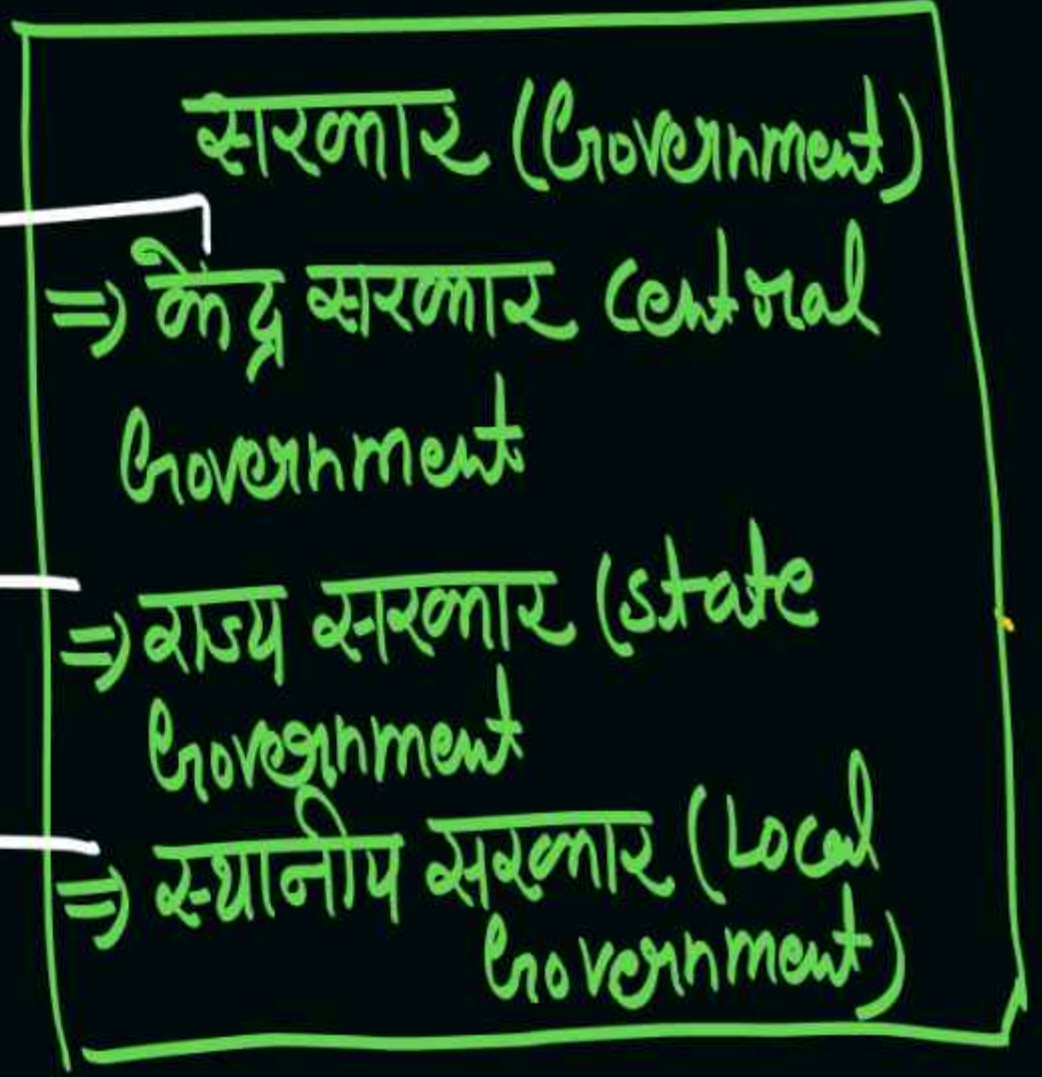 सरकार (Government)
⇒ केंद्र सरकार Central
Government
⇒ राज्य सरकार (state
Government
⇒ स्थानीय सरकार (Local
Government)